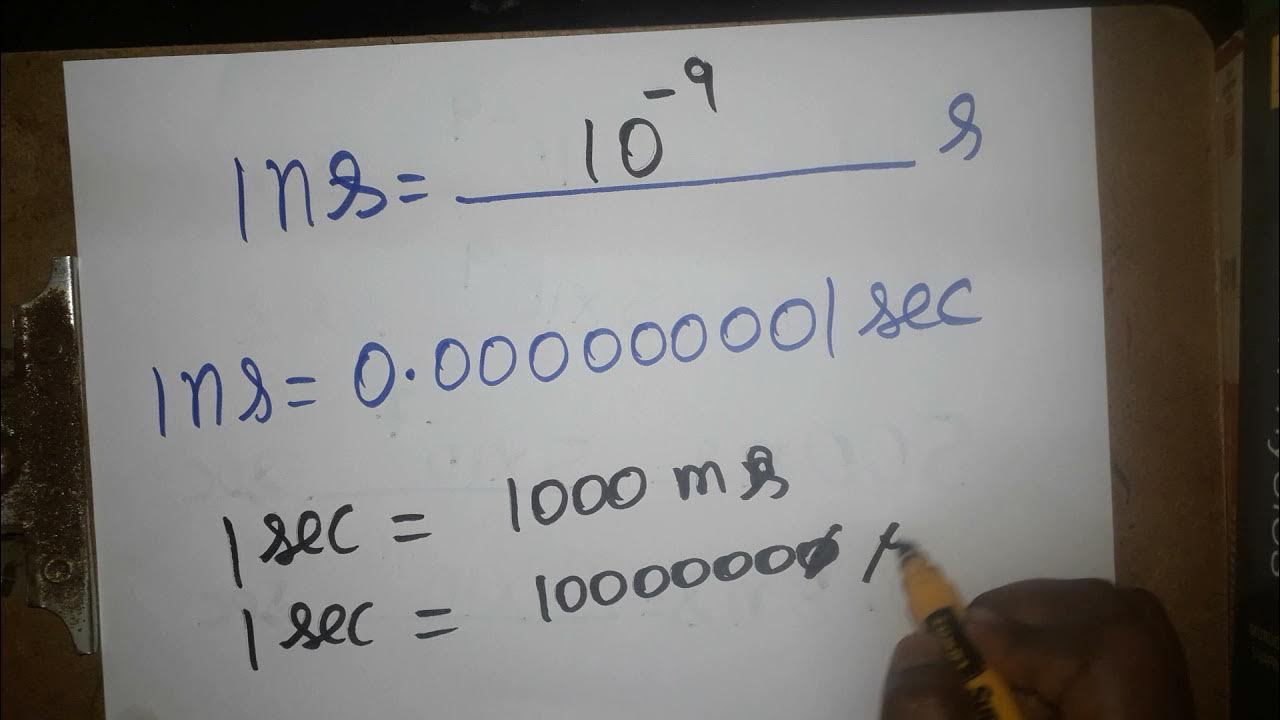 1ns = 10⁻⁹ s
1ns = 0.000000001 sec
1 sec = 1000 ms
1 sec = 1000000